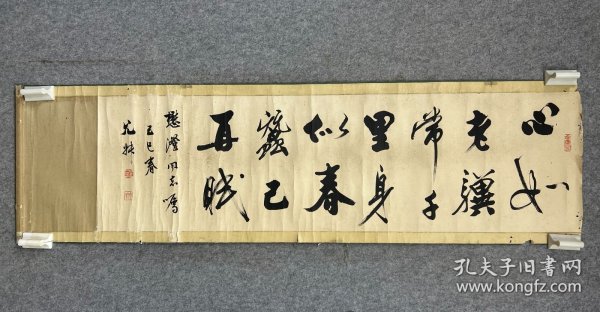 心如
老骥
常千
里身
似春
蚕已
再眠
懋澄同志嘱
己巳春
孔夫子旧书网
www.kongfz.com